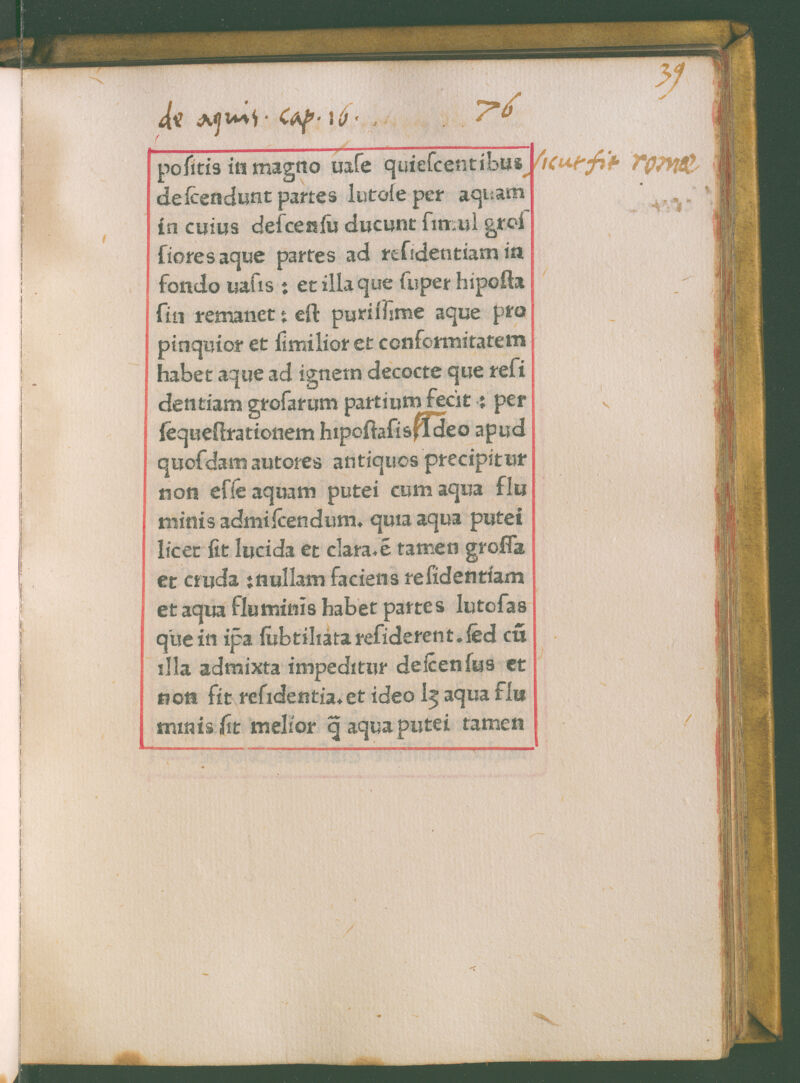 39
de aquis. cap. 16. 76
poſitis in magno uaſe quieſcentibus ſicut fit romæ
deſcendunt partes lutoſe per aquam
in cuius deſcenſu ducunt ſimul groſ
ſiores aque partes ad reſidentiam in
fondo uaſis : et illa que ſuper hipoſta
ſin remanet : eſt puriſſime aque pro
pinquior et ſimilior et conformitatem
habet aque ad ignem decocte que reſi
dentiam groſarum partium fecit : per
ſequeſtrationem hipoſtaſis Ideo apud
quoſdam autores antiquos precipitur
non eſſe aquam putei cum aqua flu
minis admiſcendum. quia aqua putei
licet ſit lucida et clara. ē tamen groſſa
et cruda : nullam faciens reſidentiam
et aqua fluminis habet partes lutoſas
que in ip̄a ſubtiliata reſiderent. ſed cū
illa admixta impeditur deſcenſus et
non fit reſidentia. et ideo lꝫ aqua flu
minis ſit melior q̄ aqua putei tamen